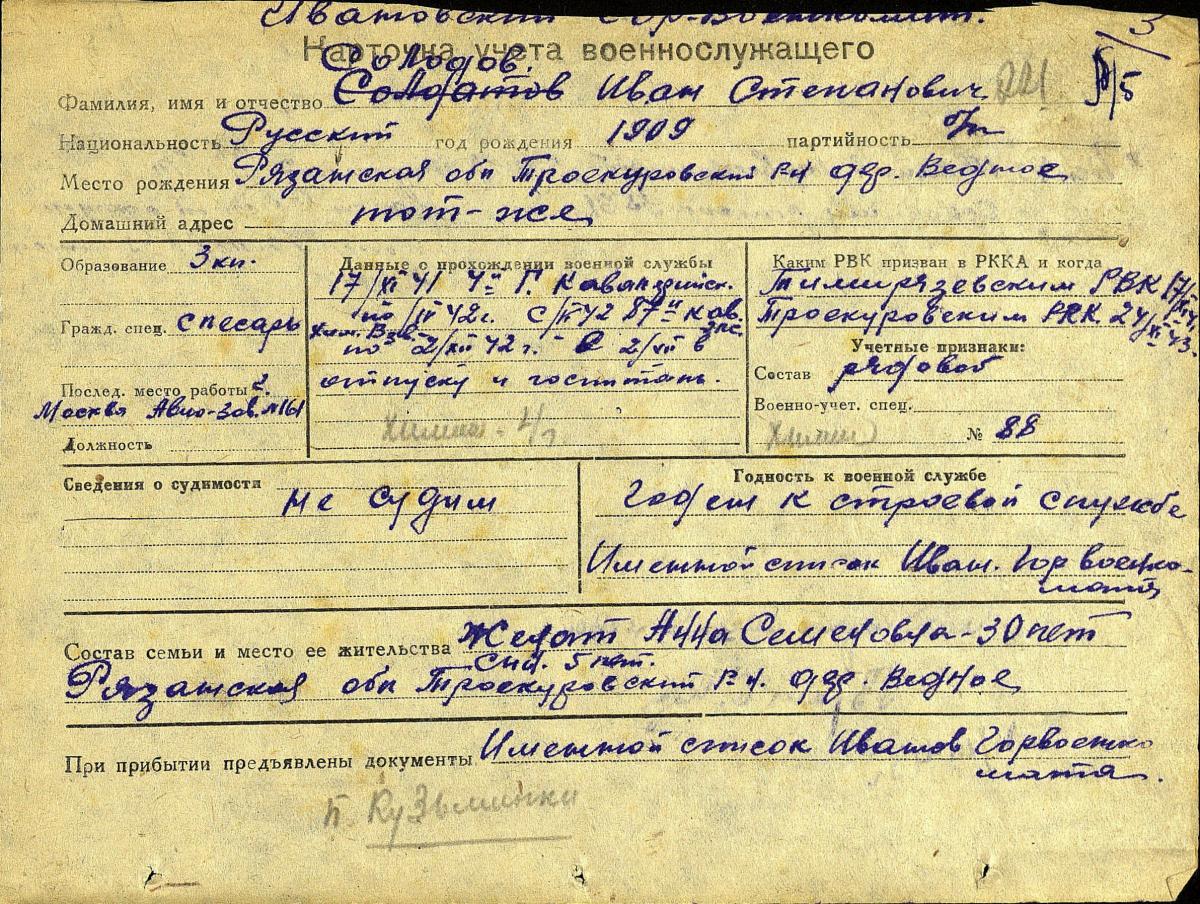 Ивановский Гор. Военкомат.
Карточка учета военнослужащего
Солодов.
Фамилия, имя и отчество Солдатов Иван Степанович
Национальность Русский год рождения 1909 партийность б/п
Место рождения Рязанская обл Троекуровский р-н дер. Ведное
Домашний адрес тот-же
Образование 3 кл.
Гражд. спец. слесарь
Послед. место работы г.
Москва Авио-зав. №161
Должность
Данные о прохождении военной службы
17/XI 41 4й Г. Кавалерийск.
по /IV 42г. с /IV 42 87й кав.
зпс.
Хим. Взв. по 2/XII 42 г. С 2/XII в
отпуску и госпиталь.
Химик -
Каким РВК призван в РККА и когда
Тимирязевским РВК
Троекуровским РВК
Учетные признаки:
Состав рядовой
Военно-учет. спец.
Химик № 88
Сведения о судимости
не судим
Годность к военной службе
Годен к строевой службе
Именной список Иван. Горвоенко-
мата
Состав семьи и место ее жительства Жена Анна Семеновна - 30 лет
Сын. 5 лет.
Рязанская обл Троекуровский р-н. дер. Ведное
При прибытии предъявлены документы Именной список Иванов Горвоенко
мата.
п. Кузьминки